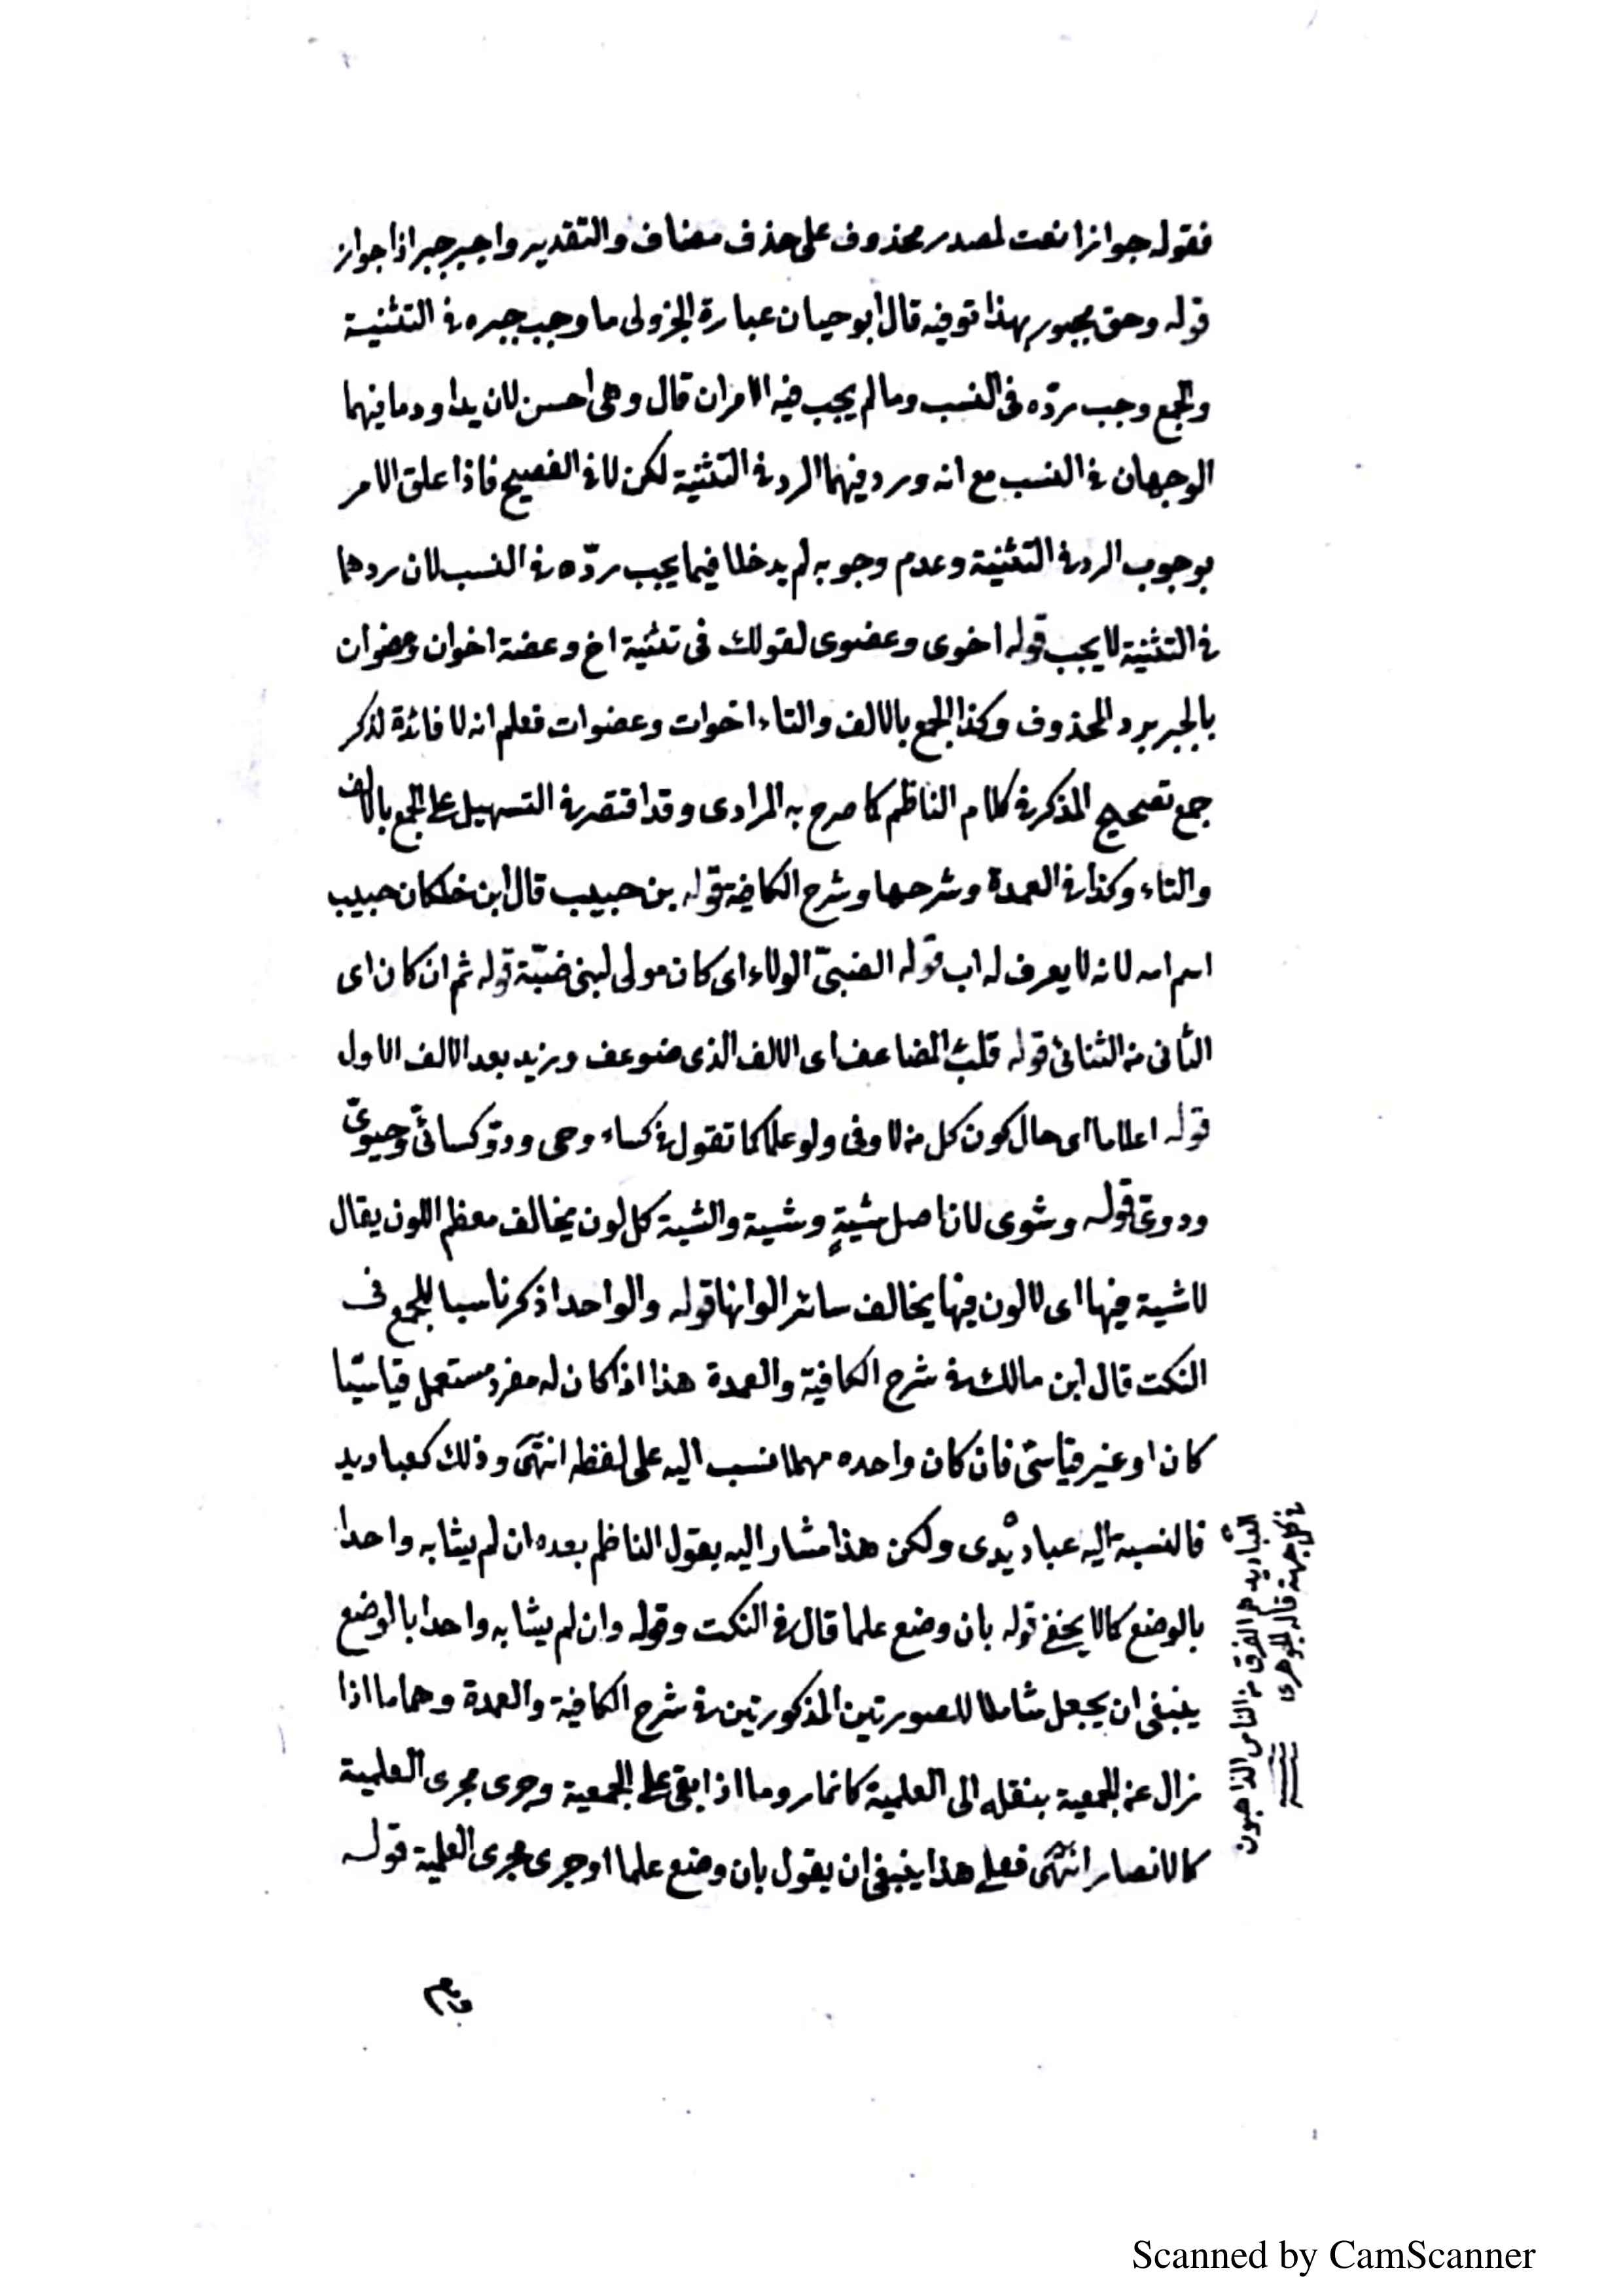 فقوله جوازا نعت لمصدر محذوف على حذف مضاف والتقدير واجبر جبرا ذا جواز
قوله وحق مجبور بهذا توفيه قال ابو حيان عبارة الجزولى ما وجب جبره فى التثنية
والجمع وجب ردّه فى النسب وما لم يجب فيه الامران قال وهى احسن لان يدا ودما فيهما
الوجهان فى النسب مع انه ورد فيهما الرد فى التثنية لكن لا فى الفصيح فاذا علق الامر
بوجوب الرد فى التثنية وعدم وجوبه لم يدخلا فيما يجب ردّه فى النسب لان ردهما
فى التثنية لا يجب قوله اخوى وعضوى لقولك فى تثنية اخ وعضة اخوان وعضوان
بالجبر برد المحذوف وكذا الجمع بالالف والتاء اخوات وعضوات فعلم انه لا فائدة لذكر
جمع تصحيح المذكر فى كلام الناظم كما صرح به المرادى وقد اقتصر فى التسهيل على الجمع بالالف
والتاء وكذا فى العمدة وشرحها وشرح الكافية قوله بن حبيب قال ابن خلكان حبيب
اسم امه لانه لا يعرف له اب قوله الضبىّ الولاء اى كان مولى لبنى ضبّة قوله ثم ان كان اى
الثانى من الثنائى قوله قلبت المضاعف اى الالف الذى ضوعف وزيد بعد الالف الاول
قوله اعلاما اى حال كون كل من لا وفى ولو علما كما تقول فى كساء وحى ودوّ كسائىّ وحيوىّ
ودوىّ قوله وشوى لان اصل شيةٍ وشية والشية كل لون يخالف معظم اللون يقال
لا شية فيها اى لا لون فيها يخالف سائر الوانها قوله والواحد اذكر ناسبا للجمع فى
النكت قال ابن مالك فى شرح الكافية والعمدة هذا اذا كان له مفرد مستعمل قياسيّا
كان او غير قياسىّ فان كان واحده مهملا نسب اليه على لفظه انتهى وذلك كعباديد
فالنسبة اليه عباديْدى ولكن هذا مشار اليه بقول الناظم بعده ان لم يشابه واحدا
بالوضع كما لا يخفى قوله بان وضع علما قال فى النكت وقوله وان لم يشابه واحدا بالوضع
ينبغى ان يجعل شاملا للصورتين المذكورتين فى شرح الكافية والعمدة وهما ما اذا
زال عن الجمعية بنقله الى العلمية كانمار وما اذا بقى على الجمعية وجرى مجرى العلمية
كالانصار انتهى فعلى هذا ينبغى ان يقول بان وضع علما او جرى مجرى العلمية قوله
العباديد هم الفرق من الناس الذاهبون
فى كل جهة قاله الجوهرى
Scanned by CamScanner